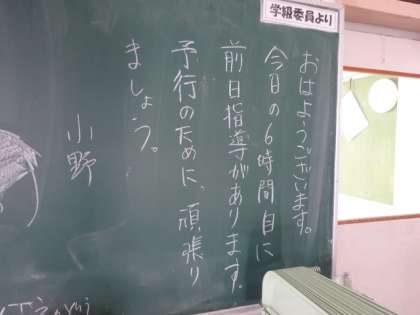 学級委員より
おはようございます。
今日の6時間目に
前日指導があります。
予行のために、頑張り
ましょう。
小野